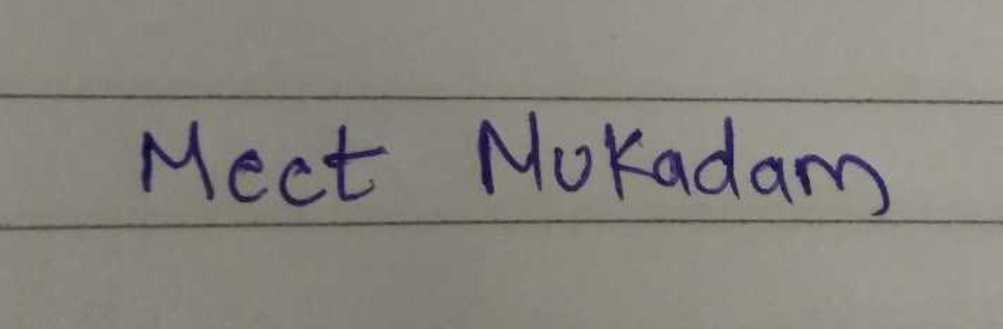 Meet Mukadam